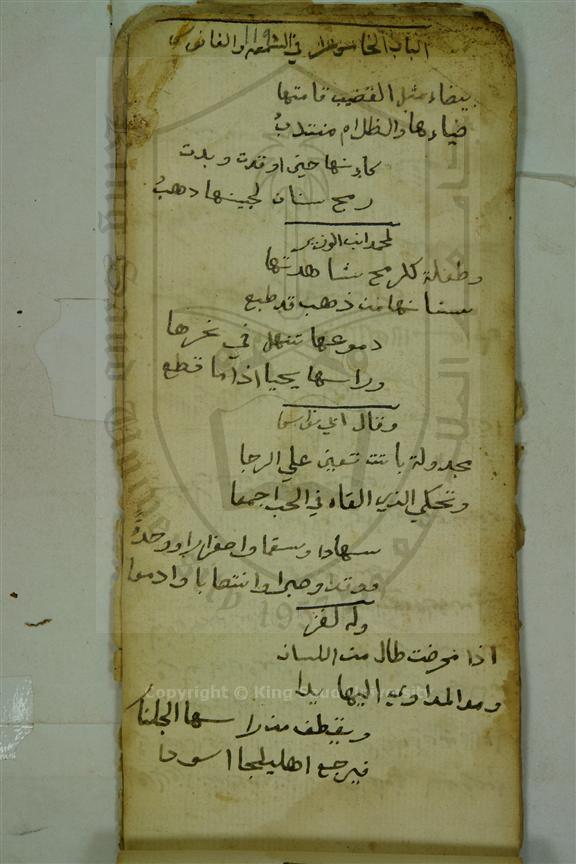 الباب الخامس عشر في الشمعه والفانوس
١١٩
بيضاء مثل القضيب قامتها
ضياءها والظلام منتدبُ
كاءنها حين اوقدت وبدت
رمح سنان لجينها دهبُ
لمحمد ابن الوزير
وطفلة كلرمح شاهدتها
سنانها من ذهب قد طبع
دموعها تنهل في نحرها
وراسها يحيا اذا ما قطع
وقال
مجدولة باتت تعين علي الرجا
وتحكي الذي القاه في الحب اجمعا
سهادا وسقما واصفرارا ووحدة
وصبرا وانتصابا وادمعا
وله لغز
اذا مرضت طال من اللسان
ومد المداوي اليها يدا
ويقطف من راسها الجلنا
فيرجع اهليلجا اسودا
Copyright © King Saud University
1957